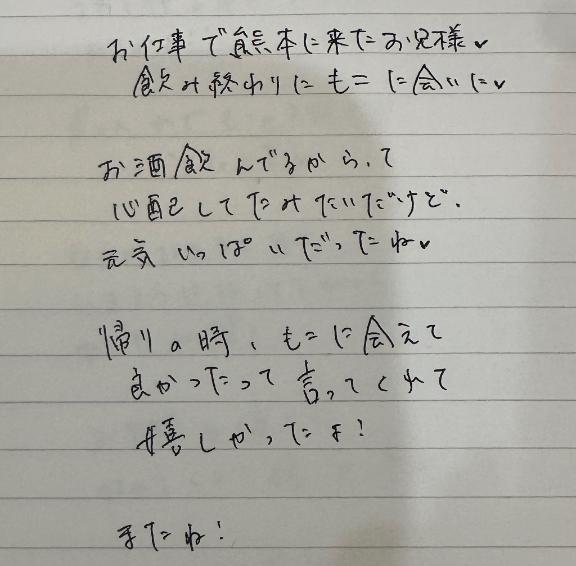 お仕事で熊本に来たお兄様♥
飲み終わりにもこに会いに♥
お酒飲んでるから、って
心配してたみたいだけど、
元気いっぱいだったね♥
帰りの時、もこに会えて
良かったって言ってくれて
嬉しかったよ!
またね!